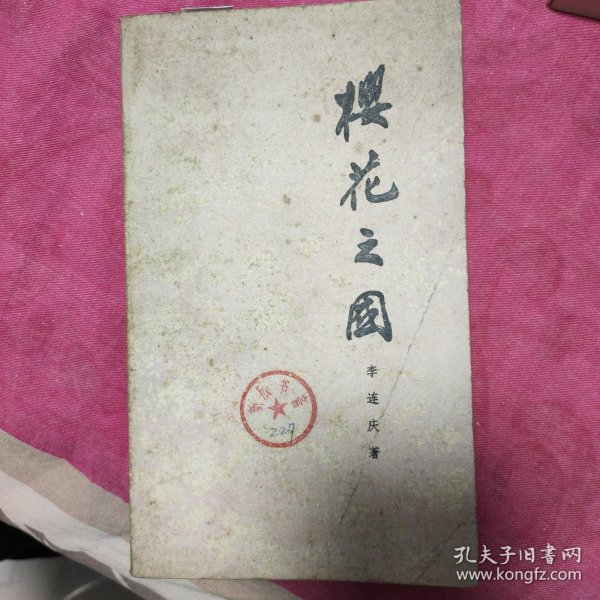 櫻花之國
李连庆著
227
孔夫子旧书网
www.kongfz.com